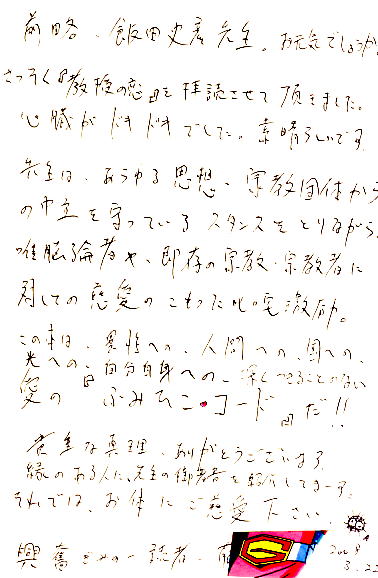 前略、飯田史彦先生。お元気でしょうか。
さっそく『教授の恋』を拝読させて頂きました。
心臓がドキドキでした。素晴らしいです。
先生は、あらゆる思想、宗教団体から
の中立を守っているスタンスをとりながら、
唯脳論者や、即存の宗教・宗教者に
対しての慈愛のこもった叱咤激励。
この本は、異性への、人間への、国への、
光への、自分自身への、深くつきることのない
愛の『ふみひこ・コード』だ!!
荘重な真理、ありがとうございます。
縁のある人に、先生の御著書を紹介してまーす。
それでは、お体にご慈愛下さい。
興奮ぎみの一読者
2008
3.22